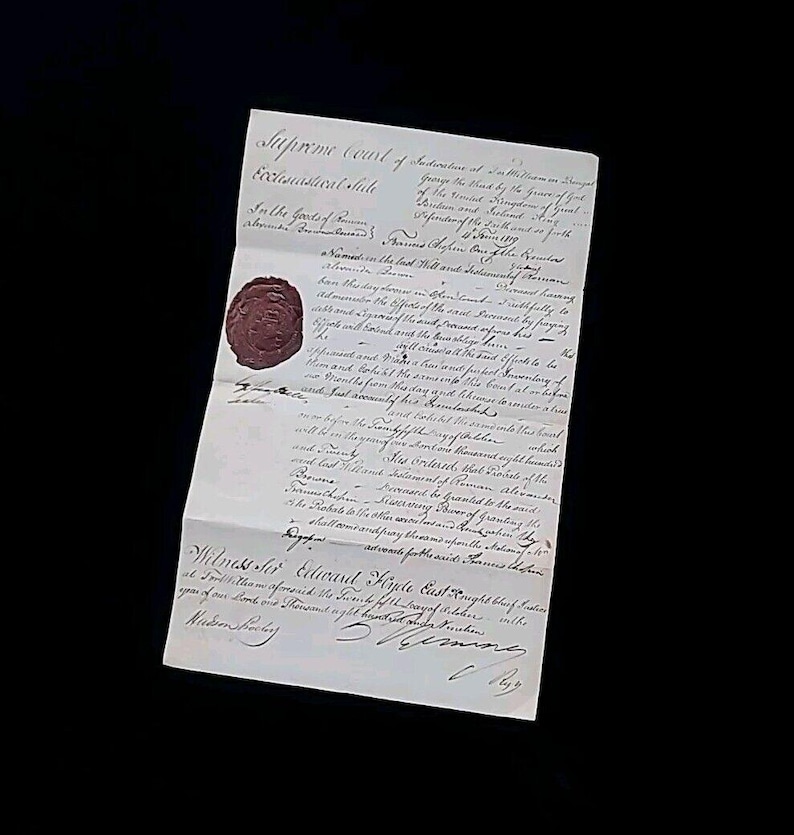 Supreme Court of Judicature at Fort William in Bengal
Ecclesiastical Side
George the third by the Grace of God
of the United Kingdom of Great
Britain and Ireland King
Defender of the Faith and so forth
In the Goods of Roman
Alexander Browne Deceased
1819
Francis Chopin One of the Executors
Named in the last Will and Testament of Roman
Alexander Browne Deceased having
been this day Sworn in Open Court Faithfully to
administer the Effects of the said Deceased by paying
debts and Legacies of the said Deceased so far as his
Effects will Extend and the Law oblige him this
he will cause all the said Effects to be
appraised and Make a true and perfect Inventory of
them and Exhibit the same into this Court at or before
six Months from this day and likewise to render a true
and Just account of his Executorship
and Exhibit the same into this Court
on or before the Twenty fifth day of October which
will be in the year of our Lord one thousand eight hundred
and Twenty It is Ordered that Probate of the
said last Will and Testament of Roman Alexander
Browne Deceased be Granted to the said
Francis Chopin Reserving Power of Granting the
like Probate to the other executors when they
shall come and pray the same upon the Motion of Mr
advocate for the said Francis Chopin
Witness Sir Edward Hyde East Knight Chief Justice
at Fort William aforesaid the Twenty fifth day of October in the
year of our Lord one Thousand eight hundred and Nineteen